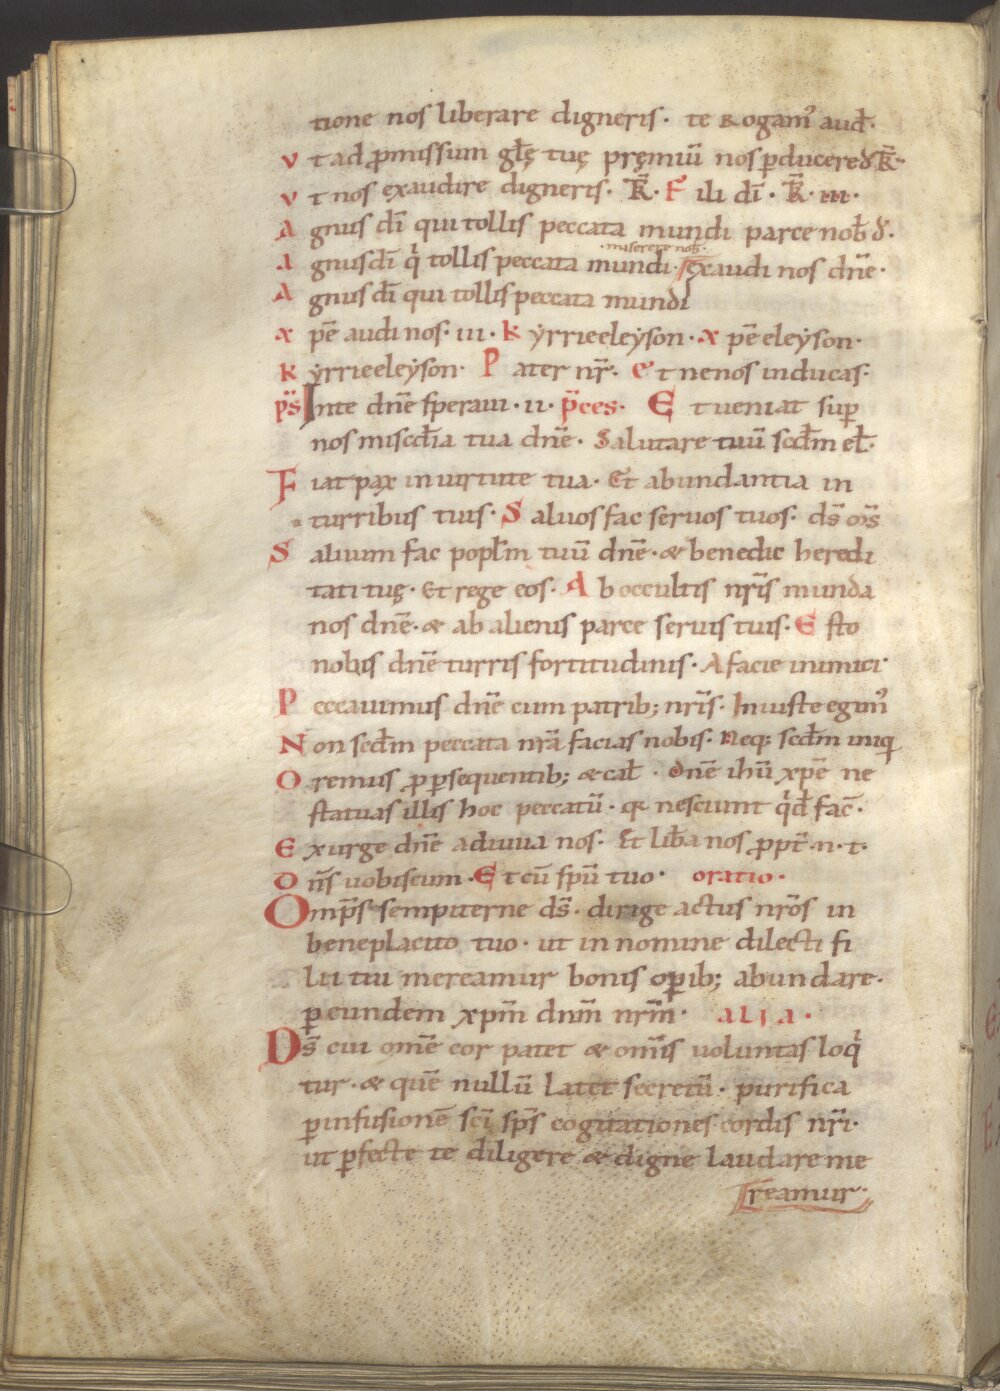 tione nos liberare digneris· te Rogam᾽ aud̄·
V t ad ꝓmissum gl̄ę tuę pręmiū nos ꝑducere d· k̄·
V t nos exaudire digneris· K̄· F ili dī· K̄· III·
A gnus dī qui tollis peccata mundi parce nob̄ d·
·miserere nob̄·
A gnus dī qͥ tollis peccata mundi· exaudi nos dn̄e·
A gnus dī qui tollis peccata mundi
X pē audi nos· III· K ẏrrieeleẏson· X pē eleẏson·
K ẏrrieeleẏson· P ater nr̄· E t ne nos inducas·
ps̄ Inte dn̄e speraui· II· p̄ces· E t ueniat suꝑ
nos miscd̄ia tua dn̄e· Salutare tuū scd̄m el̄·
F iat pax in uirtute tua· Et abundantia in
turribus tuis· S aluos fac seruos tuos· ds̄ ms̄
S aluum fac popl̄m tuū dn̄e· & benedic heredi
tati tuę· Et rege eos· A b occultis nr̄is munda
nos dn̄e· & ab alienis parce seruis tuis· E sto
nobis dn̄e turris fortitudinis· A facie inimici·
P eccauimus dn̄e cum patrib; nr̄is· Iniuste egim᾽
N on scd̄m peccata nr̄a facias nobis· Neq; scd̄m iniq
O remus ꝓ ꝑsequentib; & cal̄· Dn̄e ihū xp̄e ne
statuas illis hoc peccatū· qr nesciunt qͥd fac̄·
E xurge dn̄e adiuua nos· Et lib̄a nos ꝓpt̄· n· t·
D n̄s uobiscum· E t cū sp̄u tuo· oratio·
Omp̄s sempiterne ds̄· dirige actus nr̄os in
beneplacito tuo· ut in nomine dilecti fi
lii tui mereamur bonis oꝑib; abundare·
ꝑ eundem xp̄m dn̄m nr̄m· ALIA·
Ds̄ cui om̄e cor patet & om̄is uoluntas loqͥ
tur· & quē nullū latet secretū· purifica
ꝑ infusionē sc̄i sp̄s cogitationes cordis nr̄i·
ut ꝑfecte te diligere & digne laudare me
reamur·